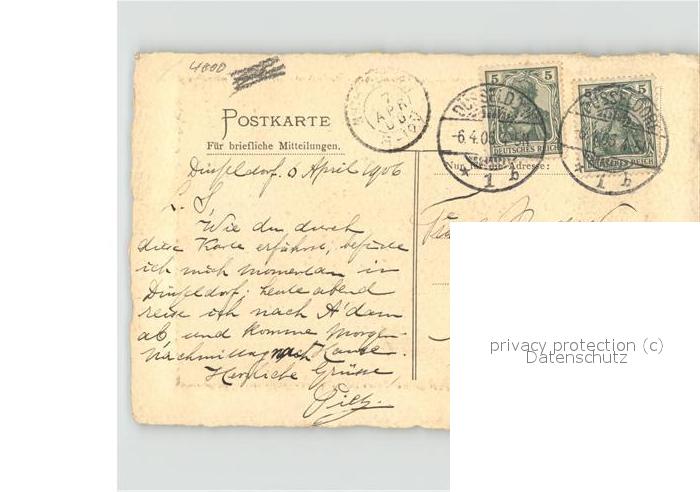 4800
POSTKARTE
Für briefliche Mitteilungen.
Nur für die Adresse:
5 5
DEUTSCHES REICH
5 5
DEUTSCHES REICH
DÜSSELDORF
6.4.06
* 1 b
DÜSSELDORF
* 1 b
7
APR
06
Düsseldorf. 6 April 1906
L. J,
Wie du durch
diese Karte erfährst, befinde
ich mich momentan in
Düsseldorf; heute abend
reise ich nach A'dam
ab, und komme Morgen
Nachmittag nach Hause.
Herzliche Grüsse
privacy protection (c)
Datenschutz